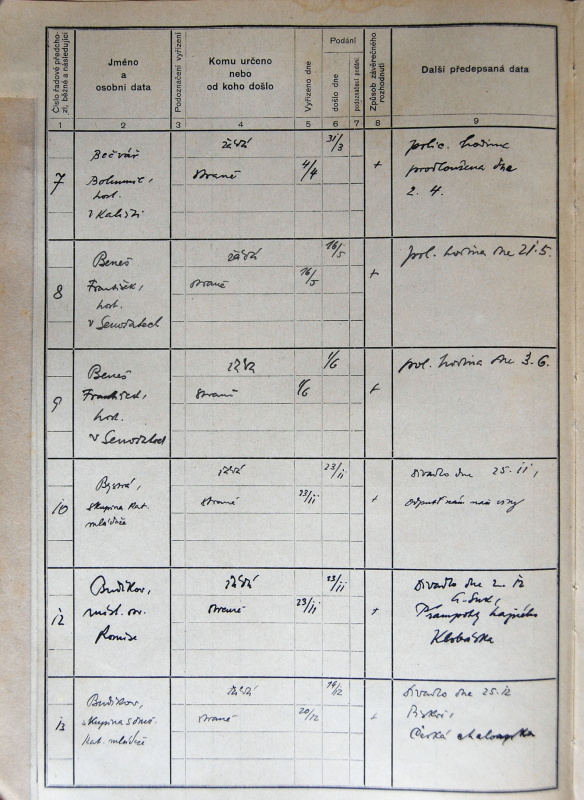 Číslo řadové předcho-
zí, běžné a následující
Jméno
a
osobní data
Podoznačení vyřízení
Komu určeno
nebo
od koho došlo
Vyřízeno dne
Podání
došlo dne
podoznačení podání
Způsob závěrečného
rozhodnutí
Další předepsaná data
1 2 3 4 5 6 7 8 9
7
Bečvář
Bohumil,
host.
v Kališti
žádá
31/3
straně
4/4
+
polic. hodina
prodloužena dne
2. 4.
8
Beneš
František,
host.
v Senožatech
žádá
16/5
straně
16/5
+
pol. hodina dne 21.5.
9
Beneš
František,
host.
v Senožatech
žádá
1/6
straně
1/6
+
pol. hodina dne 3.6.
10
Bystrá,
skupina kat.
mládeže
žádá
23/11
straně
23/11
+
Divadlo dne 25.11,
odpusť nám naše viny
12
Budíkov,
míst. sv.
žádá
23/11
straně
23/11
+
Divadlo dne 2. 12
Trampoty hajného
Klobáska
13
Budíkov,
skupina sdruž.
kat. mládeže
žádá
19/12
straně
20/12
+
Divadlo dne 25.12
Česká chaloupka